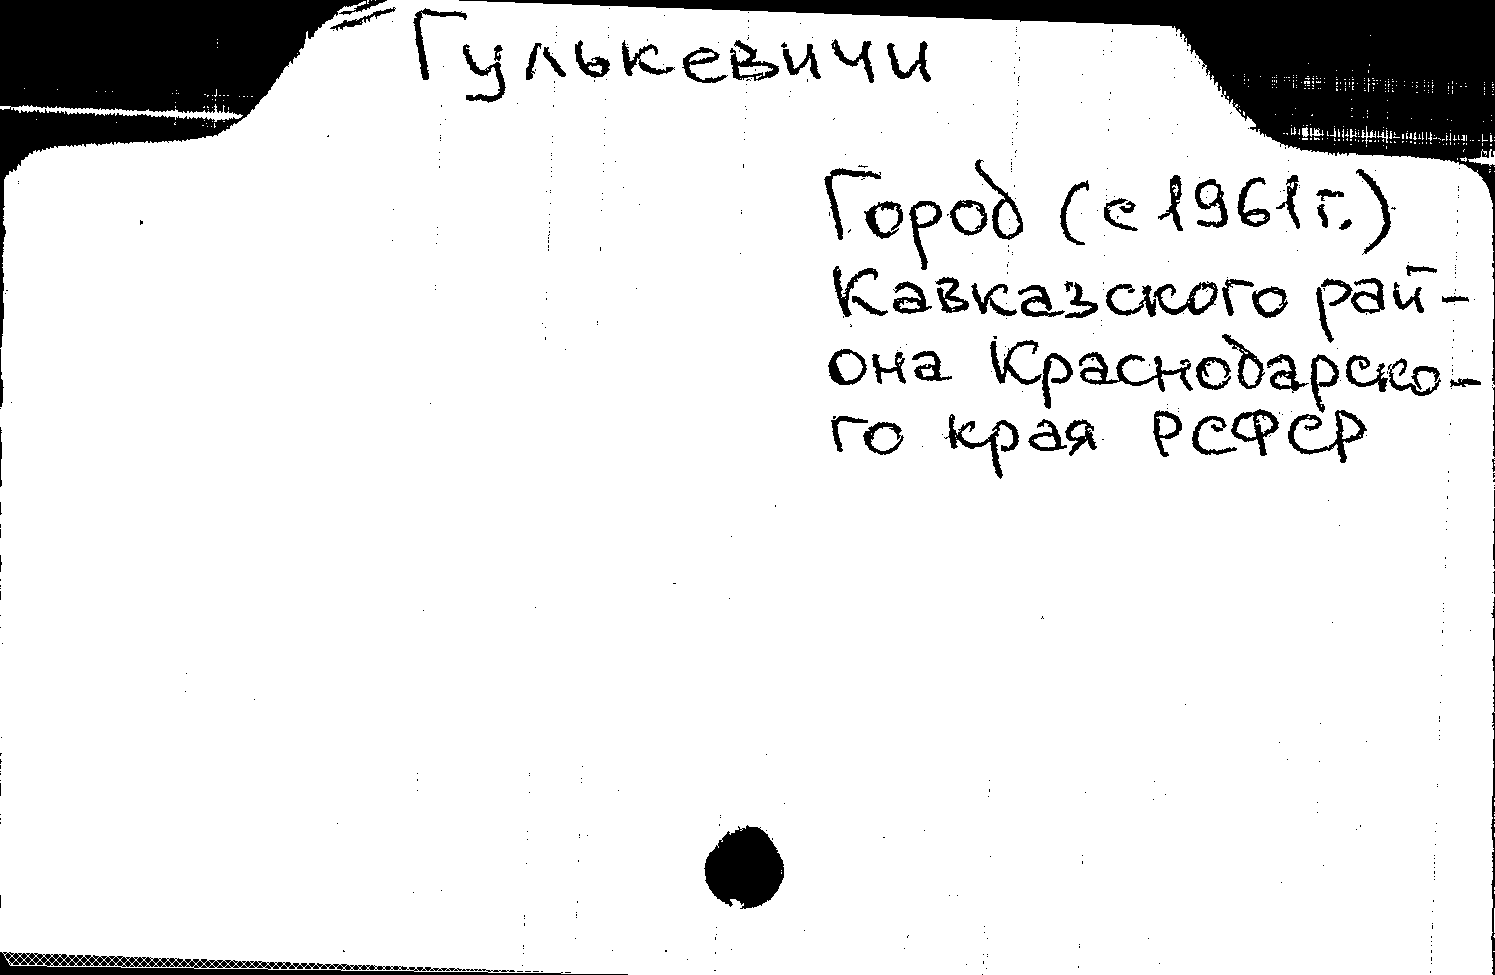 Гулькевичи
Город (с 1961 г.)
Кавказского рай-
она Краснодарско-
го края РСФСР